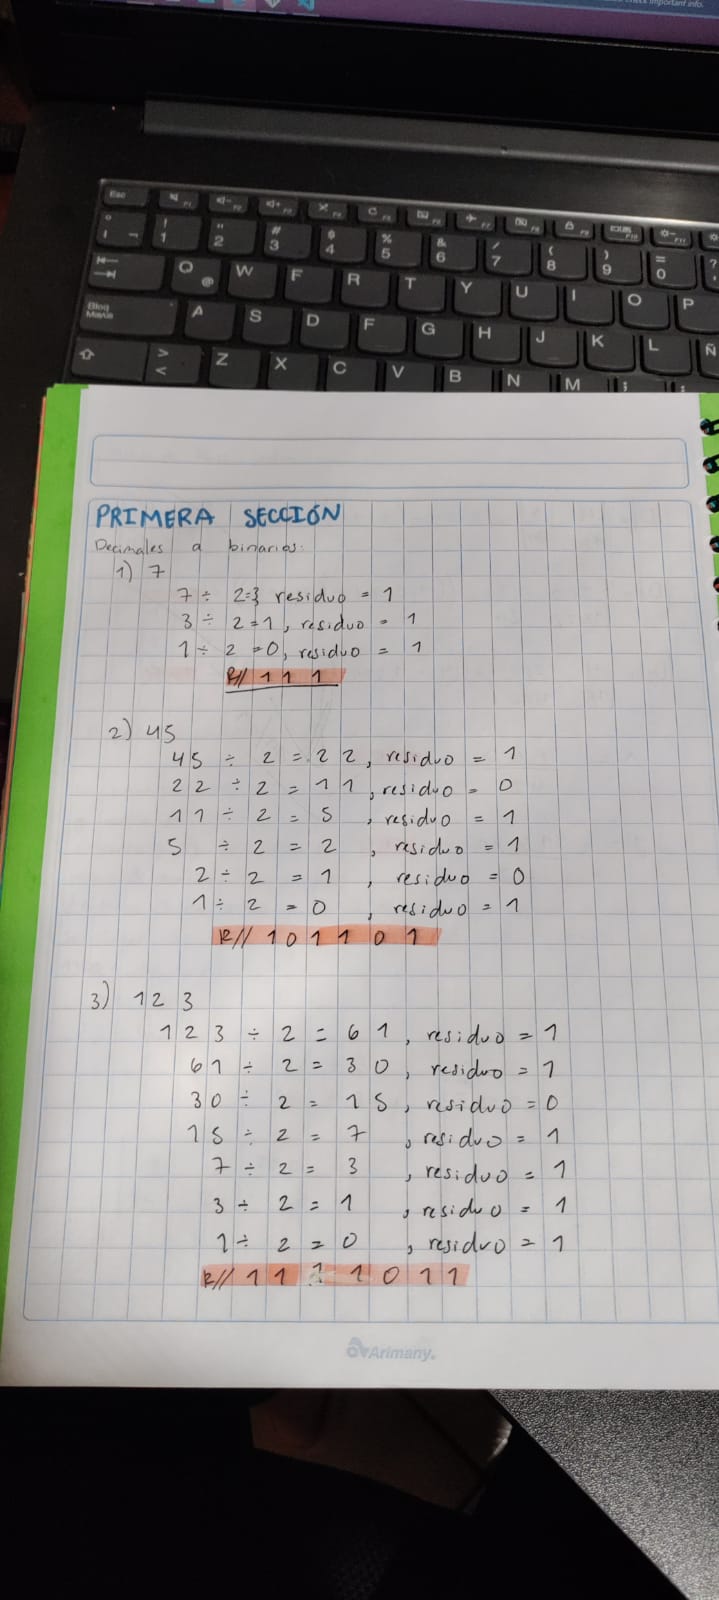 check important info.
Esc F1 F2 F3 F4 F5 F6 F7 F8 F9 F10 F11
! 1 " 2 # 3 $ 4 % 5 & 6 / 7 ( 8 ) 9 = 0 ?
Q @ W F R T Y U I O P
Bloq Mayús A S D F G H J K L Ñ
> < Z X C V B N M ; :
PRIMERA SECCIÓN
Decimales a binarios:
1) 7
7 ÷ 2=3 residuo = 1
3 ÷ 2=1, residuo = 1
1 ÷ 2 =0, residuo = 1
R// 1 1 1
2) 45
45 ÷ 2 = 22, residuo = 1
22 ÷ 2 = 11, residuo = 0
11 ÷ 2 = 5, residuo = 1
5 ÷ 2 = 2, residuo = 1
2 ÷ 2 = 1, residuo = 0
1 ÷ 2 = 0, residuo = 1
R// 1 0 1 1 0 1
3) 123
123 ÷ 2 = 61, residuo = 1
61 ÷ 2 = 30, residuo = 1
30 ÷ 2 = 15, residuo = 0
15 ÷ 2 = 7, residuo = 1
7 ÷ 2 = 3, residuo = 1
3 ÷ 2 = 1, residuo = 1
1 ÷ 2 = 0, residuo = 1
R// 1 1 1 1 0 1 1
Arimany.